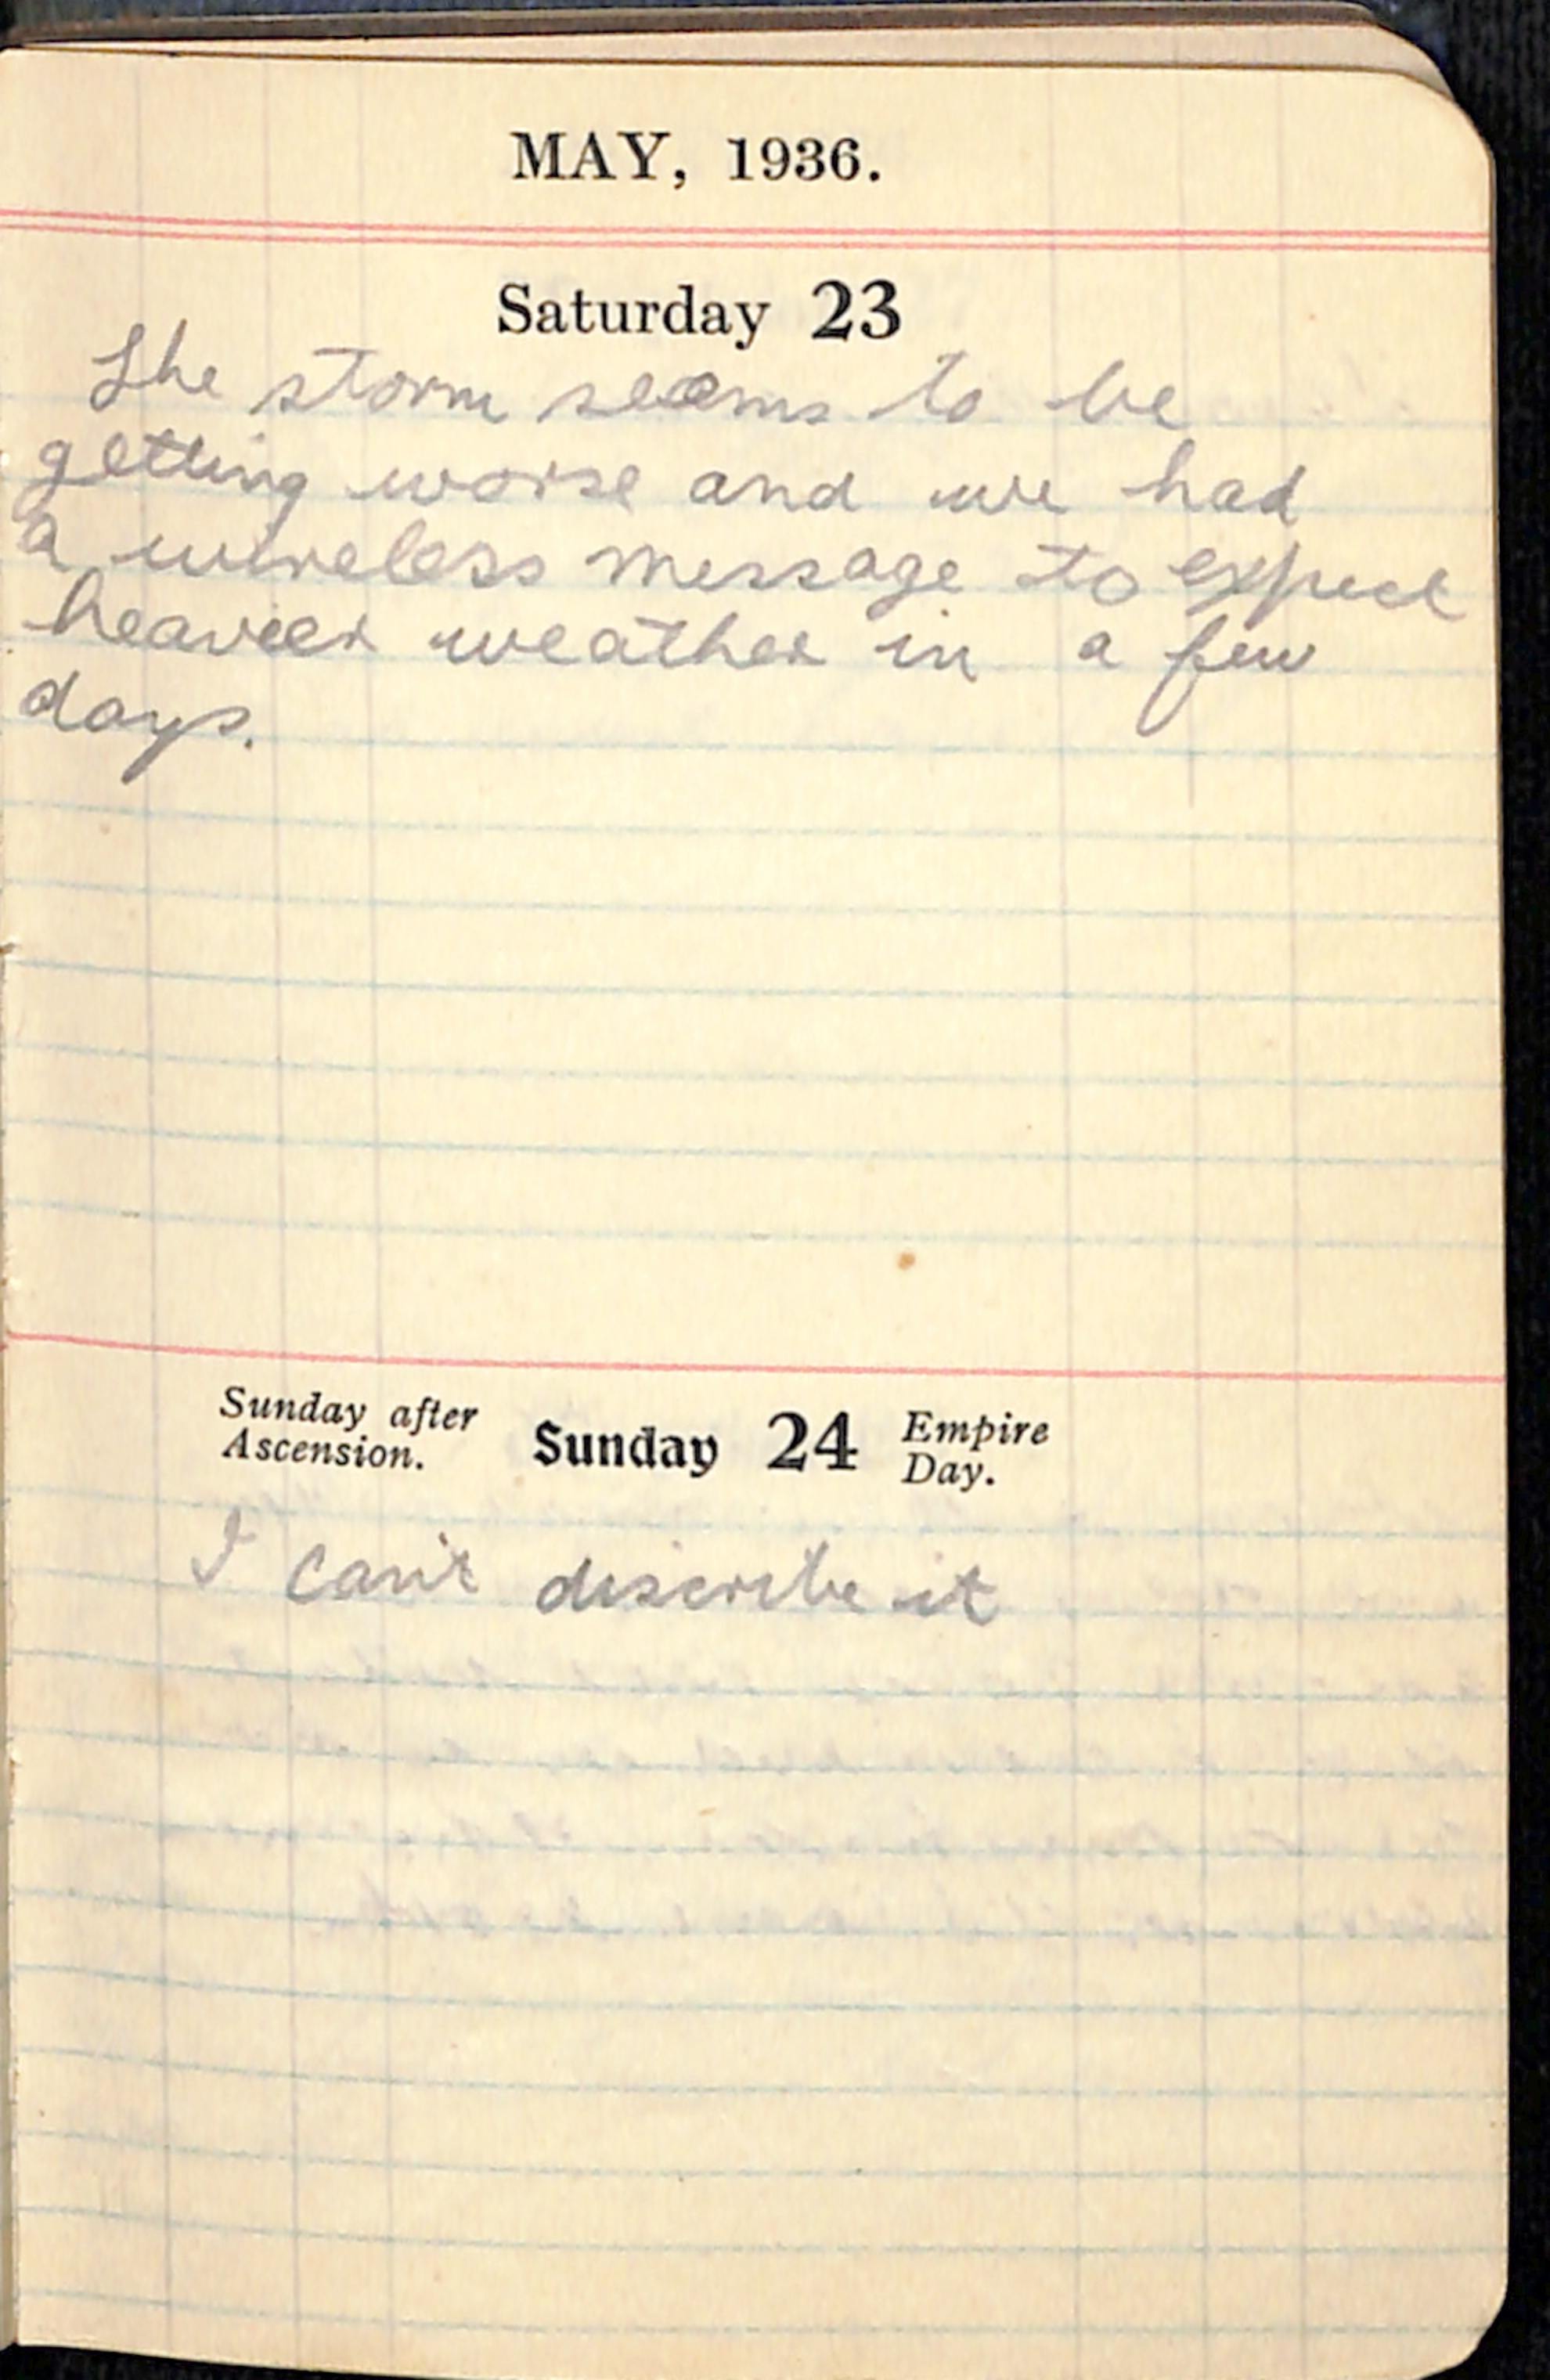 MAY, 1936.
Saturday 23
The storm seems to be
getting worse and we had
a wireless message to expect
heavier weather in a few
days.
Sunday after
Ascension.
Sunday 24
Empire
Day.
I can't discribe it